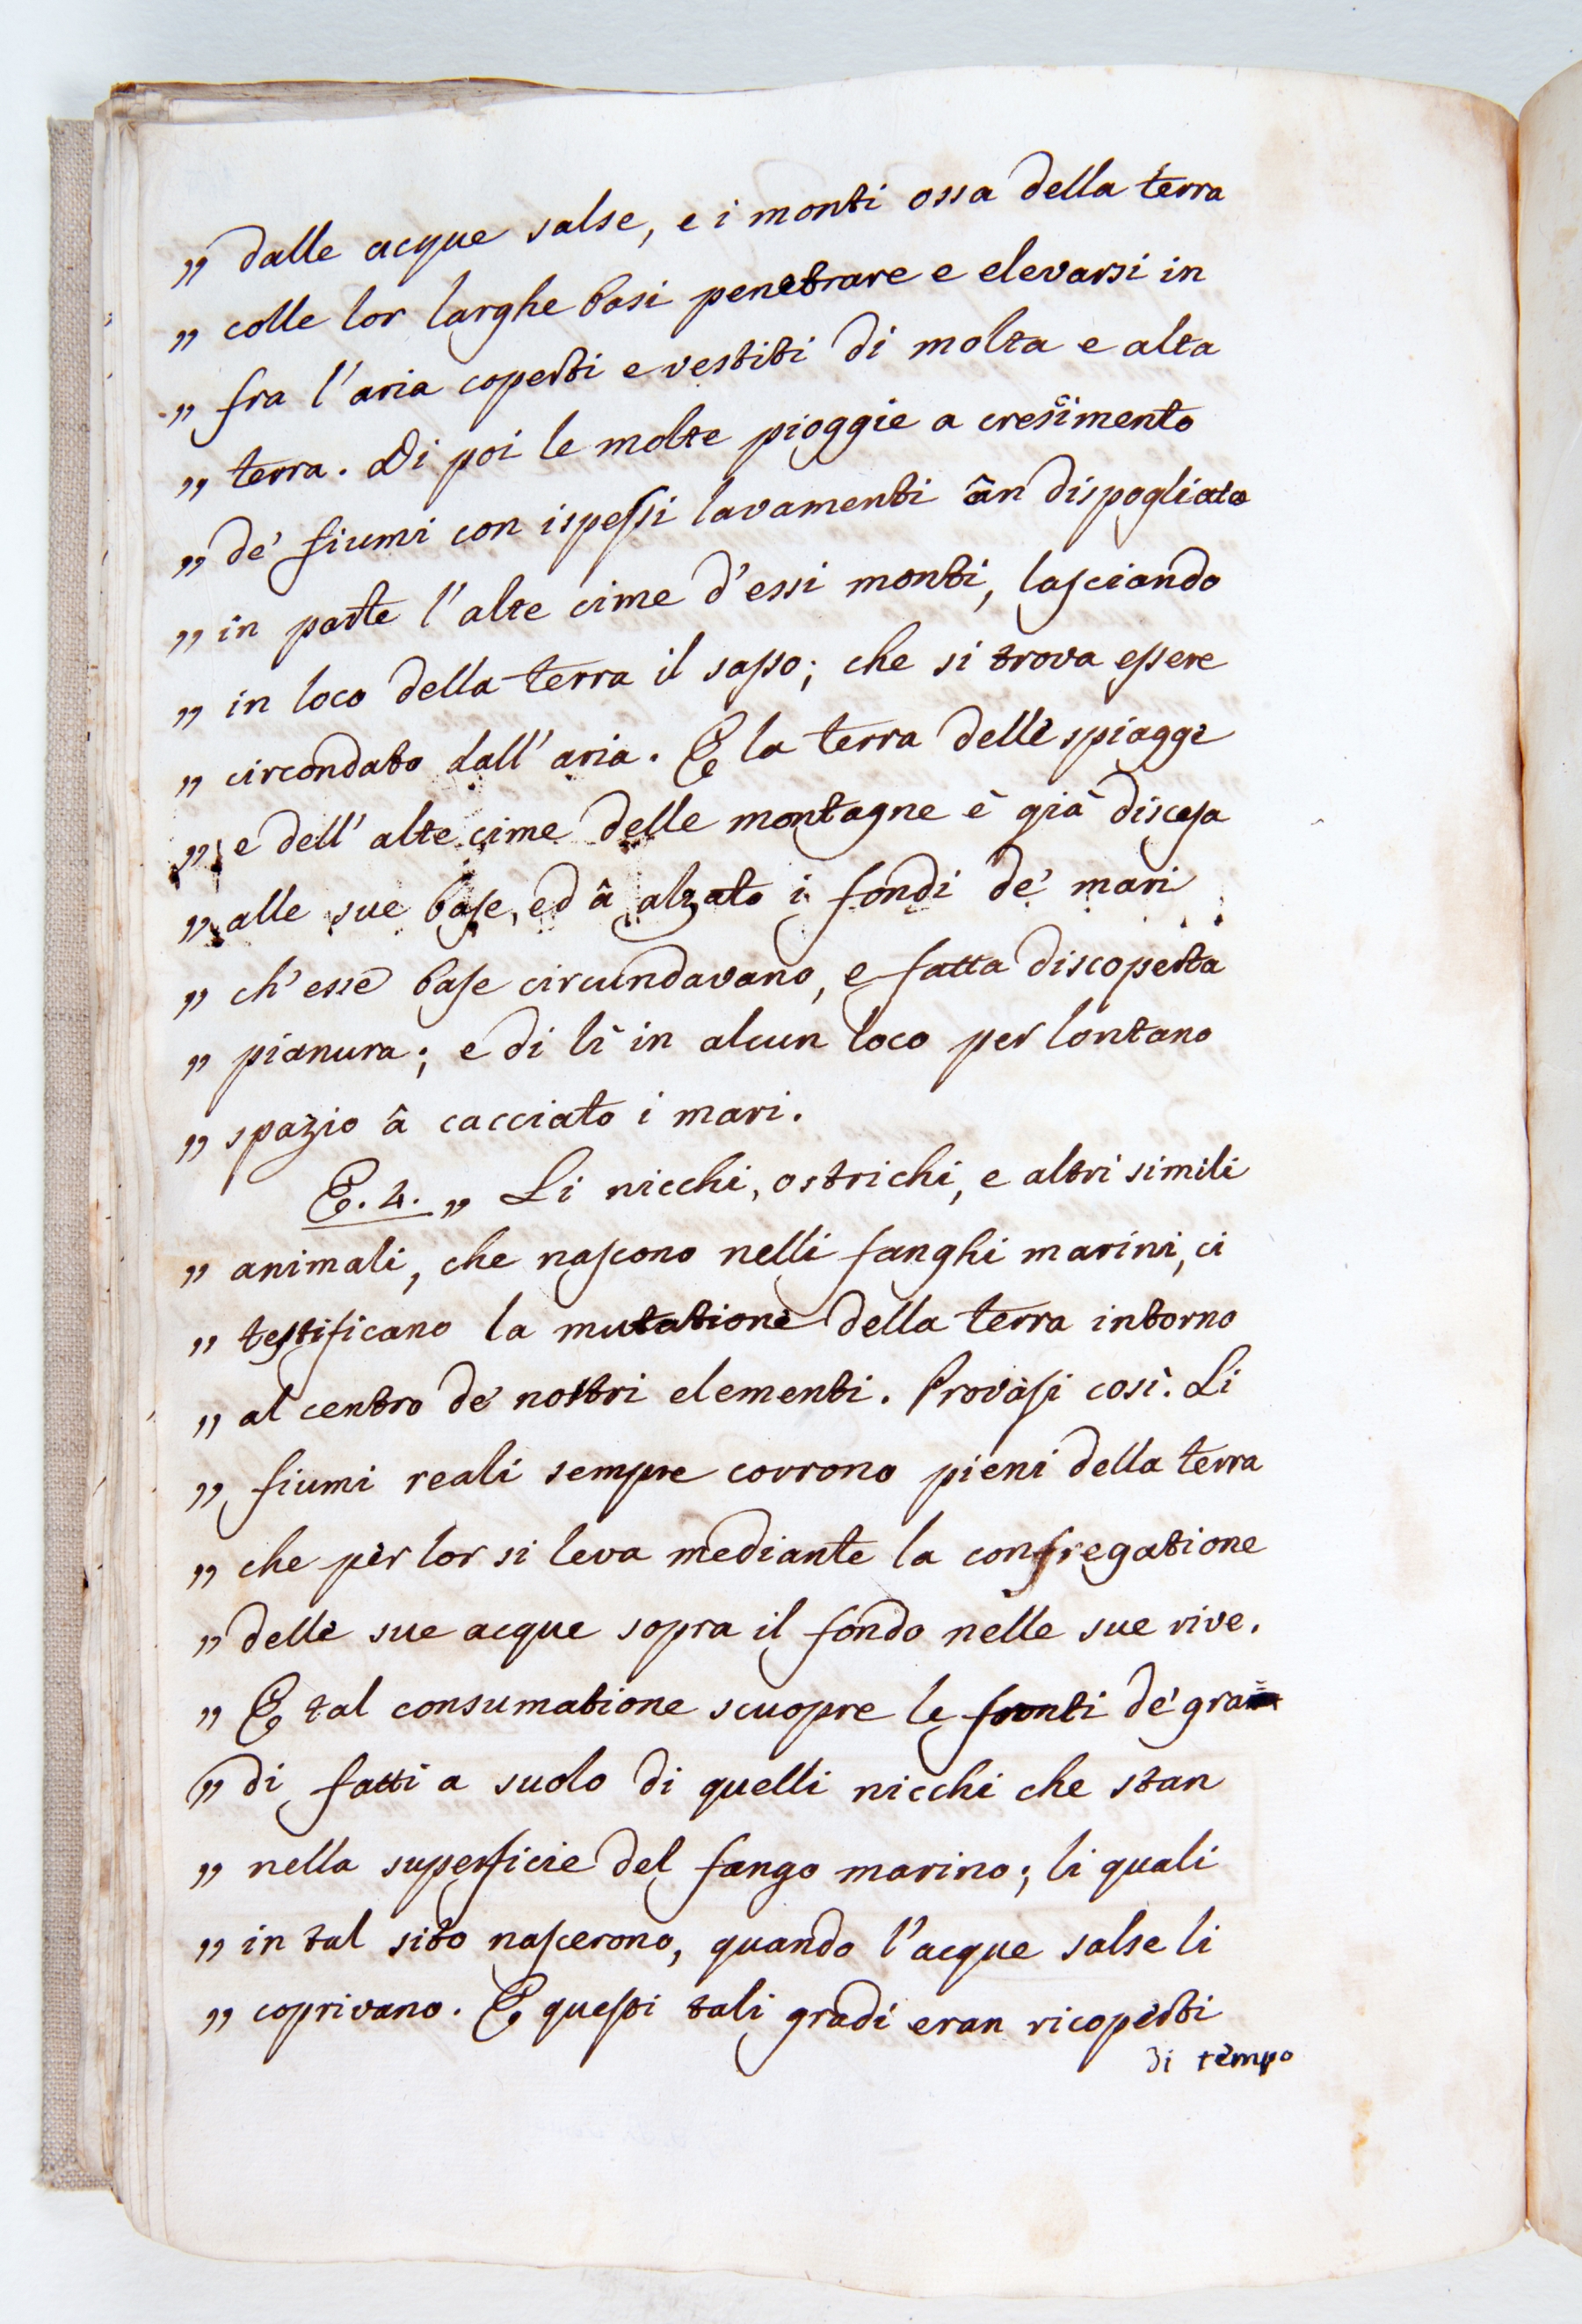 „ dalle acque salse, e i monti ossa della terra
„ colle lor larghe basi penetrare e elevarsi in
„ fra l'aria coperti e vestiti di molta e alta
„ terra. Di poi le molte pioggie a cresimento
„ de' fiumi con ispeſsi lavamenti ân dispogliato
„ in parte l'alte cime d'essi monti, laſciando
„ in loco della terra il saſso; che si trova eſsere
„ circondato dall'aria. E la terra delle spiagge
„ e dell'alte cime delle montagne è già disceſa
„ alle sue baſe, ed â alzato i fondi de' mari
„ ch'esse baſe circundavano, e fatta discoperta
„ pianura; e di lì in alcun loco per lontano
„ spazio â cacciato i mari.
E. 4. „ Li nicchi, ostrichi, e altri simili
„ animali, che naſcono nelli fanghi marini, ci
„ teſtificano la mutatione della terra intorno
„ al centro de' noſtri elementi. Provaſi così. Li
„ fiumi reali sempre corrono pieni della terra
„ che per lor si leva mediante la confregatione
„ delle sue acque sopra il fondo nelle sue rive.
„ E tal consumatione scuopre le fronti de' gra=
„ di fatti a suolo di quelli nicchi che stan
„ nella superficie del fango marino; li quali
„ in tal sito naſcerono, quando l'acque salse li
„ coprivano. E queſti tali gradi eran ricoperti
di tempo